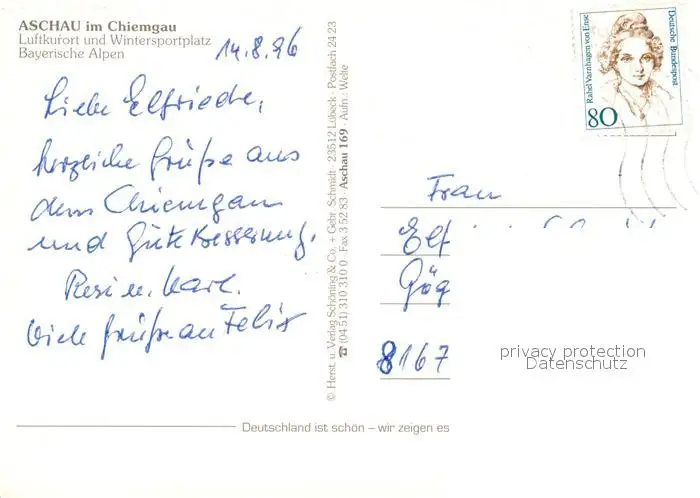 ASCHAU im Chiemgau
Luftkurort und Wintersportplatz
Bayerische Alpen
14.8.96
Liebe Elfriede,
herzliche Grüße aus
dem Chiemgau
und Gute Besserung.
Resi u. Karl.
Viele Grüße an Felix
© Herst. u. Verlag Schöning & Co. + Gebr. Schmidt · 23512 Lübeck · Postfach 24 23
☎ (04 51) 310 310 0 · Fax 3 52 83 · Aschau 169 · Aufn.: Welte
Rahel Varnhagen von Ense
Deutsche Bundespost
80
Frau
Elf
Gög
8167
privacy protection
Datenschutz
Deutschland ist schön – wir zeigen es